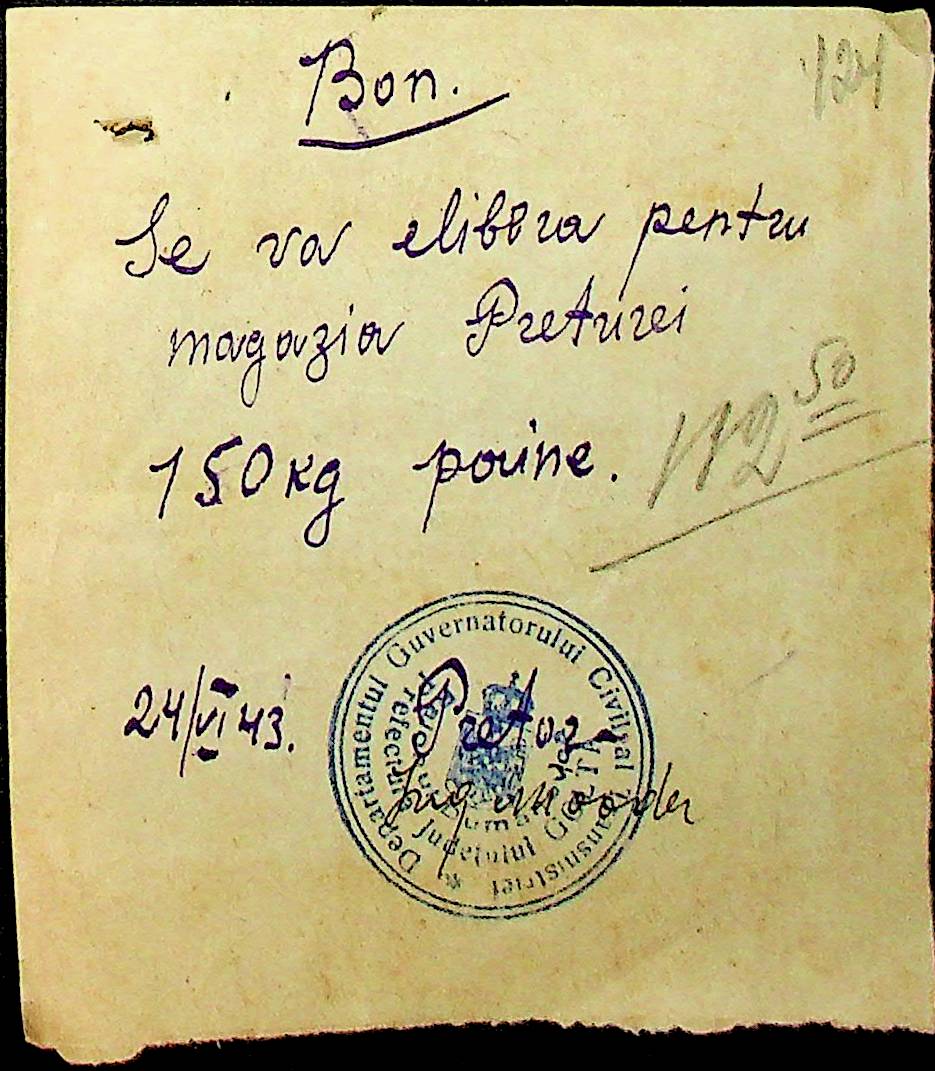 124
Bon.
Se va elibera pentru
magazia Preturei
150 kg poine.
112 50
24/VI 43.
Pretor
Departamentul Guvernatorului Civil al Transnistriei
Prefectura Județului Golta